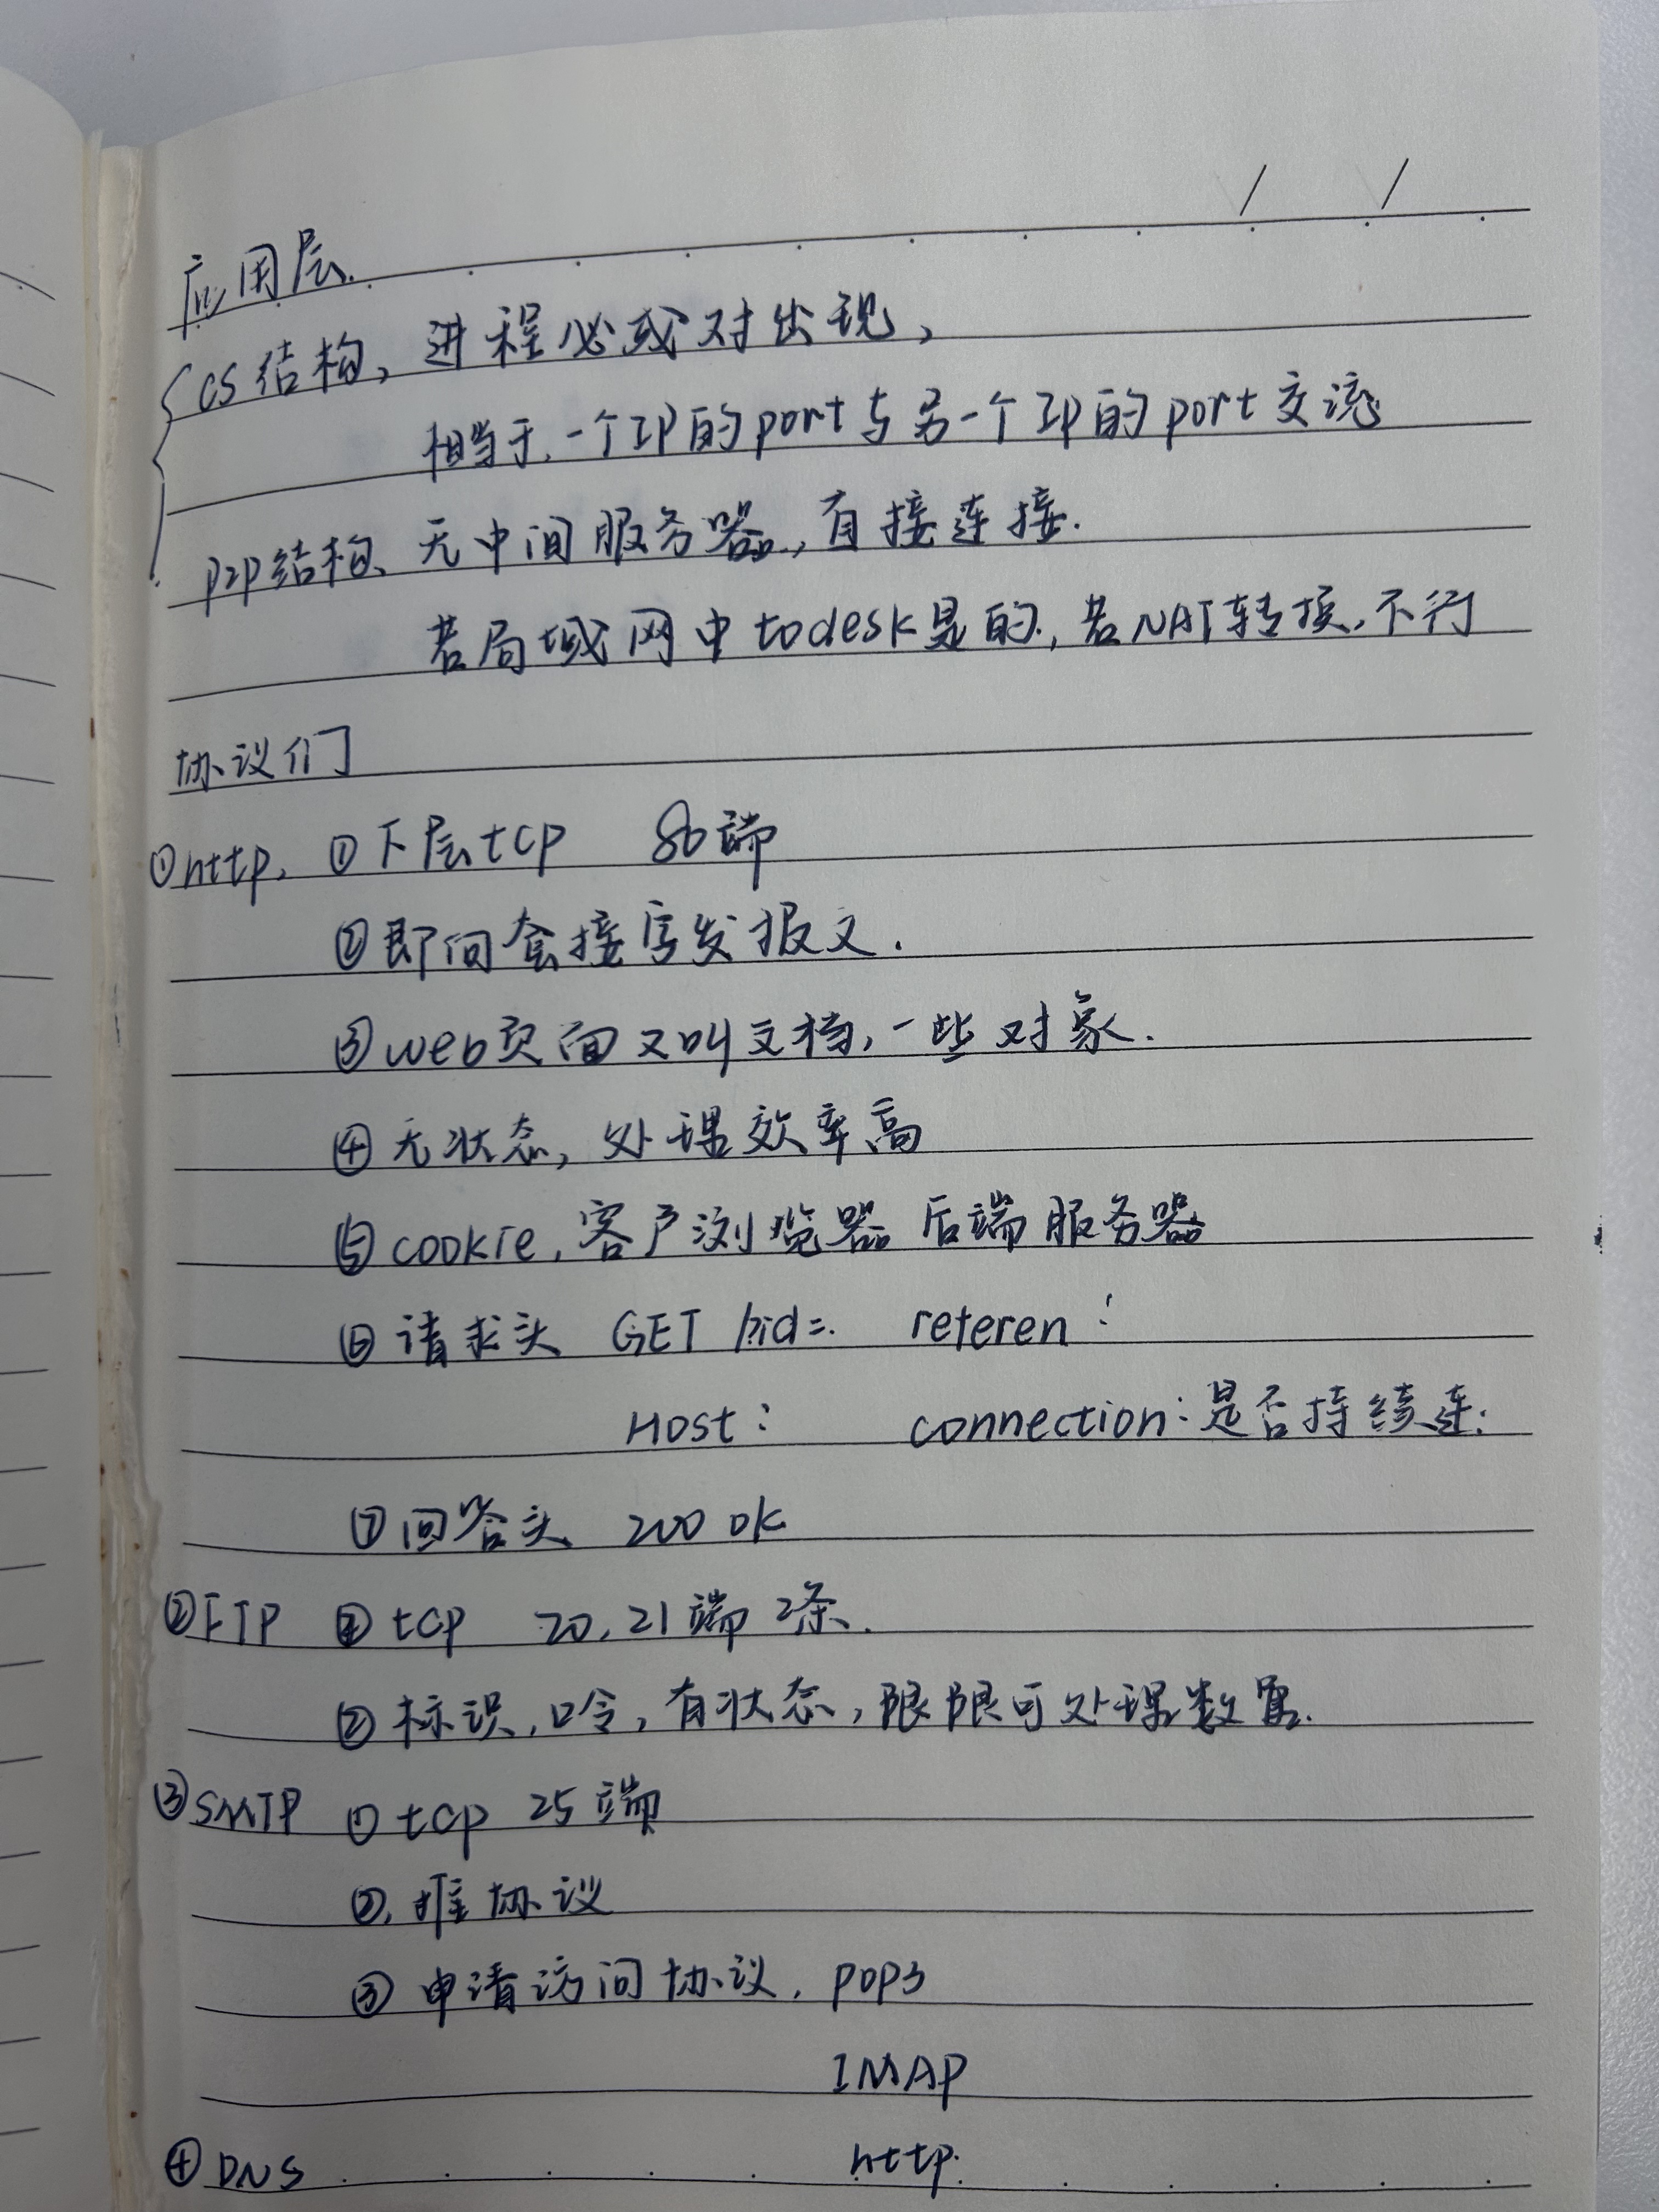 应用层.
CS结构, 进程必成对出现,
相当于.一个IP的port与另一个IP的port交流
P2P结构、无中间服务器, 直接连接.
若局域网中todesk是的, 若NAT转换, 不行
协议们
①http. ①下层tcp 80端
②即向套接字发报文.
③web页面又叫文档, 一些对象.
④无状态, 处理效率高
⑤cookie, 客户浏览器 后端服务器
⑥请求头 GET /?id=. referen:
Host: connection:是否持续连.
⑦回答头 200 OK
②FTP ① tcp 20, 21端 2条.
②标识, 口令, 有状态, 限限可处理数量.
③SMTP ① tcp 25端
②. 推协议
③ 申请访问协议, POP3
IMAP
④DNS http.